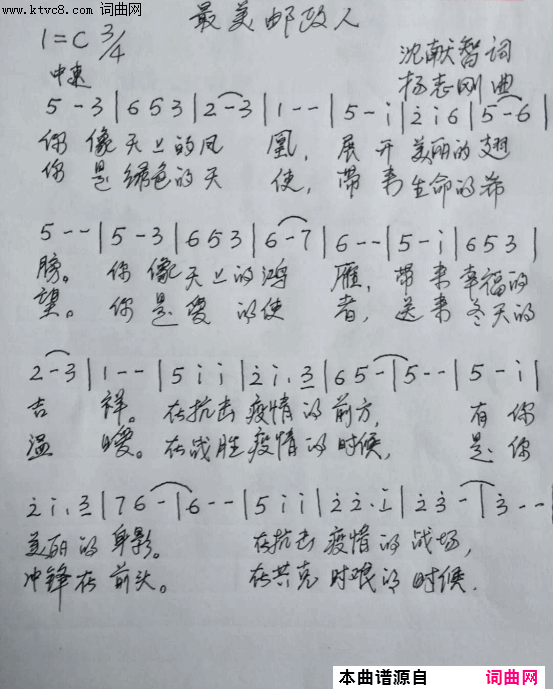 www.ktvc8.com 词曲网
最美邮政人
1=C 3/4
中速
沈献智 词
杨志刚 曲
5 - 3 | 6 5 3 | 2 - 3 | 1 - - | 5 - i | 2̇ i 6 | 5 - 6 |
你像天上的凤凰，展开美丽的翅
你是绿色的天使，带来生命的希
5 - - | 5 - 3 | 6 5 3 | 6 - 7 | 6 - - | 5 - i | 6 5 3 |
膀。你像天上的鸿雁，带来幸福的
望。你是爱的使者，送来冬天的
2 - 3 | 1 - - | 5 i i | 2̇ i. 3̇ | 6 5 - | 5 - - | 5 - i |
吉祥。在抗击疫情的前方，有你
温暖。在战胜疫情的时候，是你
2̇ i. 3̇ | 7 6 - | 6 - - | 5 i i | 2̇ 2̇. i | 2̇ 3̇ - | 3̇ - -
美丽的身影。在抗击疫情的战场，
冲锋在前头。在共克时艰的时候.
本曲谱源自 词曲网